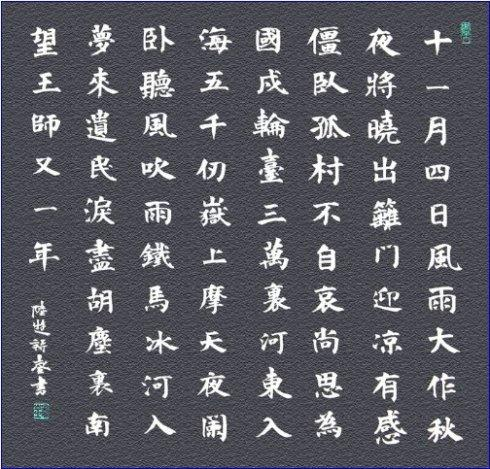 十一月四日風雨大作秋
夜將曉出籬門迎凉有感
僵臥孤村不自哀尚思為
國戍輪臺三萬裏河東入
海五千仞嶽上摩天夜闌
卧聽風吹雨鐵馬冰河入
夢來遺民淚盡胡塵裏南
望王師又一年
陸遊書